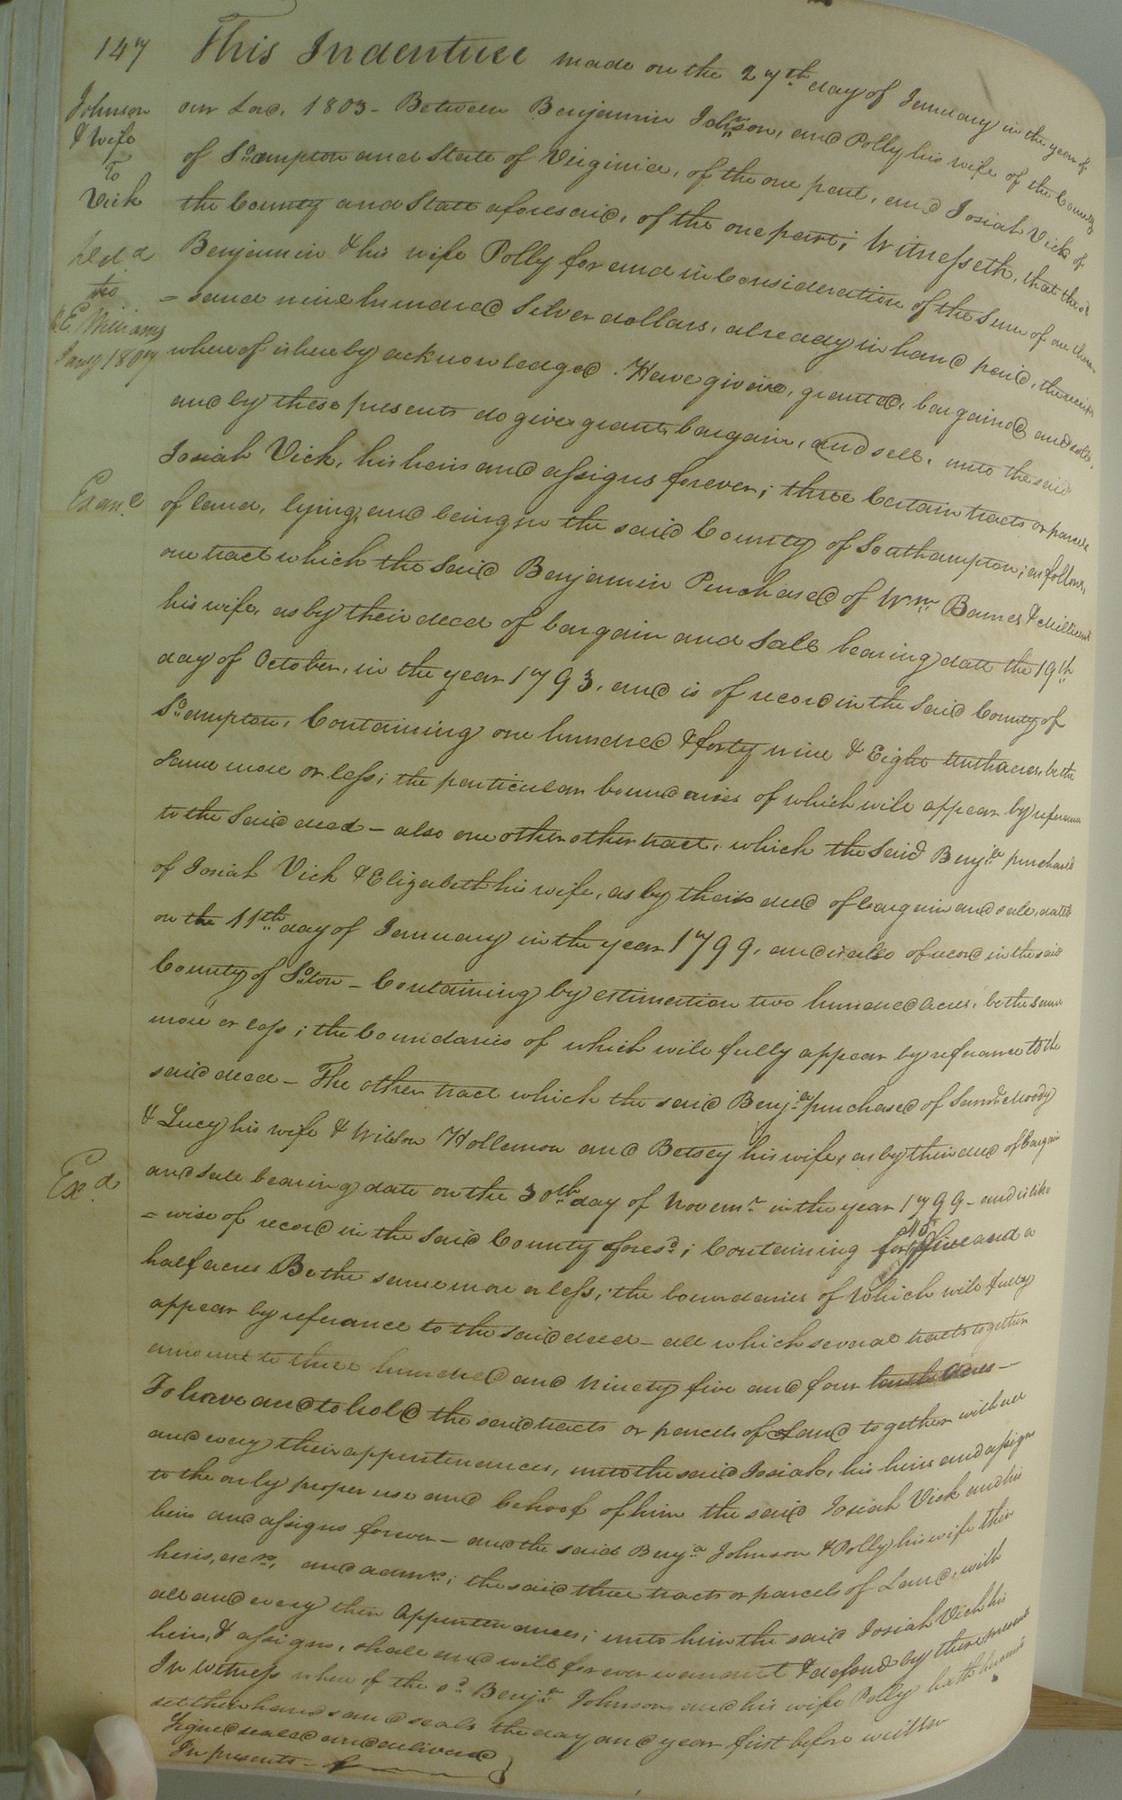 147
Johnson
& Wife
To
Vick
deld
to
E Williams
Jany 1807
Exand
Exd
This Indenture made on the 27th day of January in the year of
our Lord, 1803 - Between Benjamin Johnson, and Polly his wife of the County
of So.ampton and State of Virginia, of the one part, and Josiah Vick of
the County and State aforesaid, of the one part; Witnesseth, that the sd
Benjamin & his wife Polly for and in Consideration of the Sum of one thou
= sand nine hundred Silver dollars, already in hand paid, the receipt
whereof is hereby acknowledged. Have given, granted, bargained and sold,
and by these presents do give grant, bargain, and sell, unto the said
Josiah Vick, his heirs and assigns forever; three Certain tracts or parcels
of land, lying, and being in the said County of Southampton; as follows,
one tract which the said Benjamin Purchased of Wm Barnes &
his wife, as by their deed of bargain and Sale bearing date the 19th
day of October, in the year 1793, and is of record in the said County of
So.ampton, Containing one hundred & forty nine & Eight tenth acres, be the
Same more or less; the particular boundaries of which will appear by referance
to the Said deed - also one other other tract, which the Said Benja purchased
of Josiah Vick & Elizabeth his wife, as by their deed of bargain and sale, dated
on the 11th day of January in the year 1799, and is also of record in the said
County of So.ton - Containing by estimation two hundred acres, be the same
more or less; the boundaries of which will fully appear by referance to the
said deed - The other tract which the said Benja purchased of Saml Moody
& Lucy his wife & Willson Holleman and Betsey his wife, as by their deed of bargain
and sale bearing date on the 30th day of Novemr in the year 1799 - and is like
= wise of record in the Said County aforesd; Containing forty 45 five and a
half acres Be the same more or less; the boundaries of Which will fully
appear by referance to the said deed - all which several tracts together
amount to three hundred and Ninety five and four tenth acres -
To have and to hold the said tracts or parcels of Land together with all
and every their appurtenances, unto the said Josiah, his heirs and assigns
to the only proper use and behoof of him the said Josiah Vick and his
heirs and assigns forever - and the said Benja Johnson & Polly his wife their
heirs, exers, and admrs; the said three tracts or parcels of Land, with
all and every their Appurtenances; unto him the said Josiah Vick his
heirs, & assigns, shall and will forever warrant & defend by these presents
In Witness whereof the sd Benja Johnson and his wife Polly hath hereunto
set their hands and seals the day and year first before written
Signed sealed and delivered
In presents -